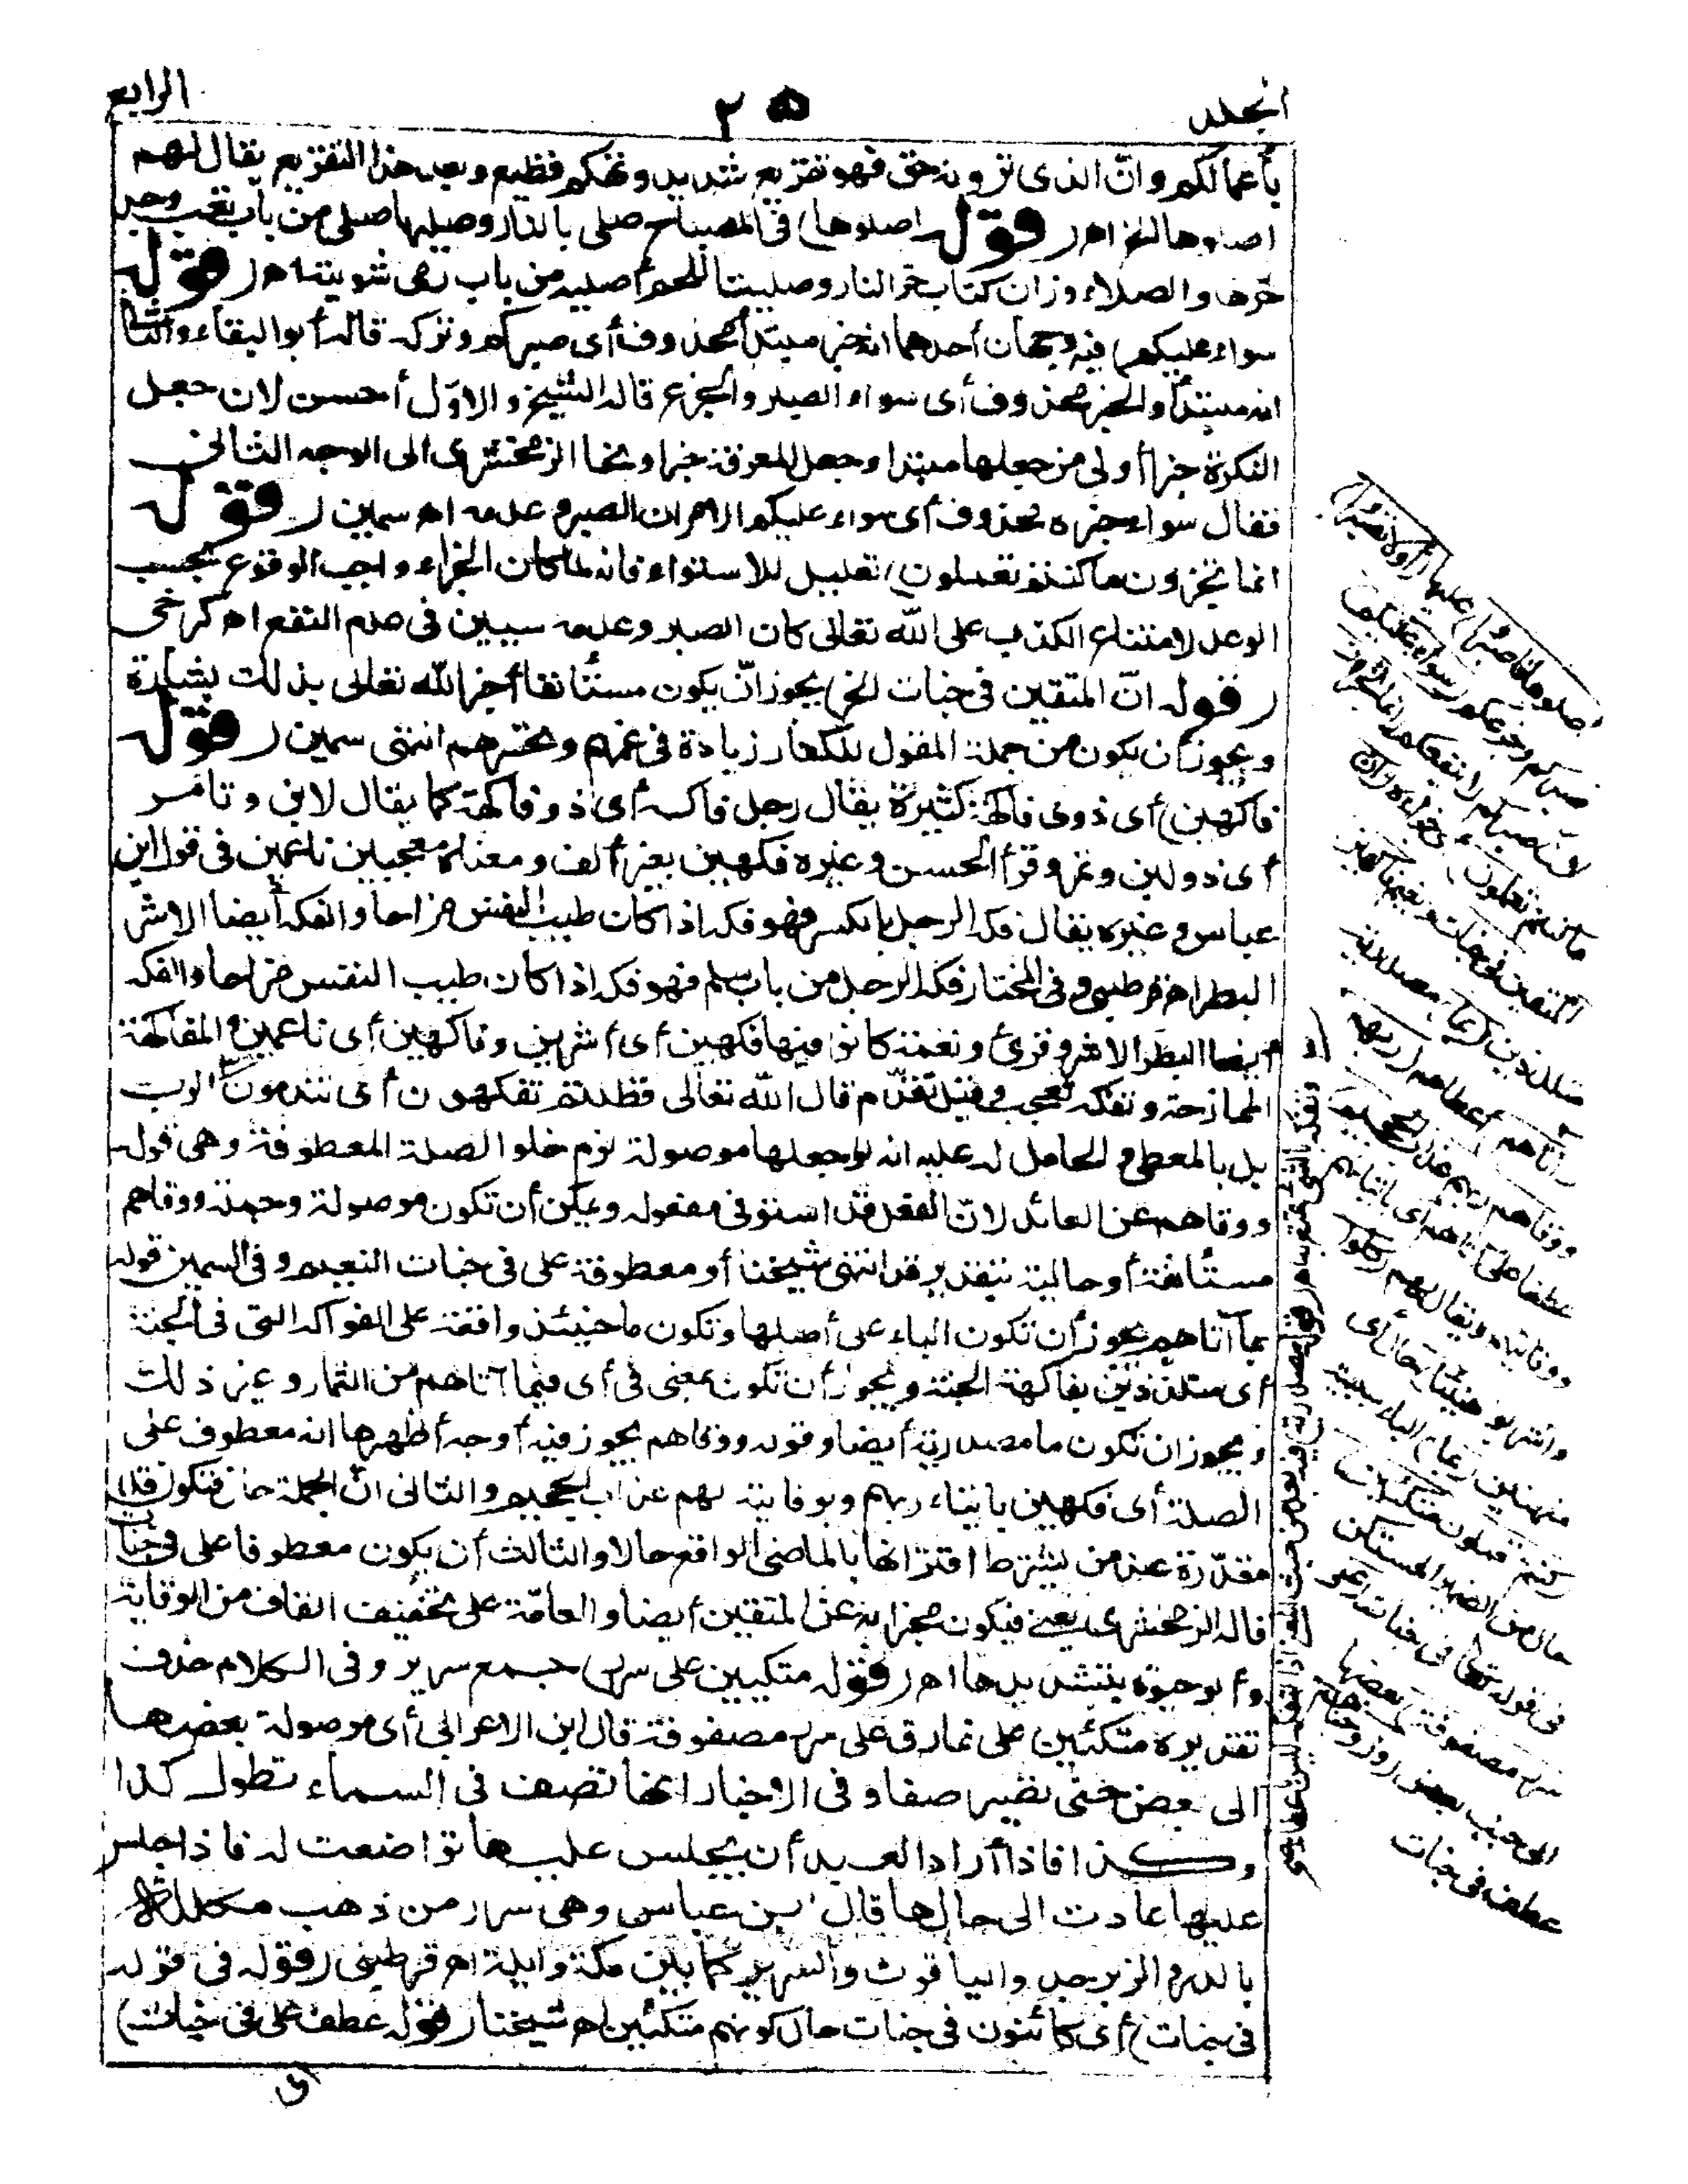 المجلد ٢٥ الرابع
بأعمالكم وانّ الذى ترونه حق فهو تقريع شديد وتهكم فظيع وبعد هذا التقريع يقال لهم
اصلوها الخ اهـ (قوله اصلوها) فى المصباح صلى بالنار وصليها صلى من باب تعب وجد
حرّها والصلاء وزان كتاب حر النار وصليت اللحم أصليه من باب رمى شويته اهـ (قوله
سواء عليكم) فيه وجهان أحدهما انه خبر مبتدأ محذوف أى صبركم وتركه قاله أبو البقاء والثانى
انه مبتدأ والخبر محذوف أى سواء الصبر والجزع قاله الشيخ والاوّل أحسن لان جعل
النكرة خبرا أولى من جعلها مبتدا وجعل المعرفة خبرا ونحا الزمخشرى الى الوجه الثانى
فقال سواء خبره محذوف أى سواء عليكم الامران الصبر وعدمه اهـ سمين (قوله
انما تجزون ما كنتم تعملون) تعليل للاستواء فانه لما كان الجزاء واجب الوقوع بحسب
الوعد لامتناع الكذب على الله تعالى كان الصبر وعدمه سيين فى عدم النفع اهـ كرخى
(قوله انّ المتقين فى جنات الخ) يجوز انّ يكون مستأنفا أخبر الله تعالى بذلك بشارة
ويجوز أن يكون من جملة المقول للكفار زيادة فى غمهم وتحسرهم انتهى سمين (قوله
فاكهين) أى ذوى فاكهة كثيرة يقال رجل فاكه أى ذو فاكهة كما يقال لابن وتامر
أى ذو لبن وتمر وقرأ الحسن وغيره فكهين بغير ألف ومعناه معجبين ناعمين فى قول ابن
عباس وغيره يقال فكه الرجل بالكسر فهو فكه اذا كان طيب النفس مزاحا والفكه أيضا الاشر
البطر اهـ قرطبى وفى المختار فكه الرجل من باب سلم فهو فكه اذا كان طيب النفس مزاحا والفكه
أيضا البطر الاشر وقرئ ونعمة كانوا فيها فكهين أى أشرين وفاكهين أى ناعمين والمفاكهة
الممازحة وتفكه تعجب وقيل تقدّم قال الله تعالى فظلتم تفكهون أى تندمون
بل بالمعطى والحامل له عليه انه لو جعلها موصولة لزم خلو الصلة المعطوفة وهى قوله
ووقاهم عن العائد لانّ الفعل قد استوفى مفعوله ويمكن أن تكون موصولة وجملة ووقاهم
مستأنفة أو حالية بتقدير قد انتهى شيخنا أو معطوفة على فى جنات النعيم وفى السمين قوله
بما آتاهم يجوز أن تكون الباء على أصلها وتكون ما حينئذ واقعة على الفواكه التى فى الجنة
أى متلذذين بفاكهة الجنة ويجوز أن تكون بمعنى فى أى فيما آتاهم من الثمار وغير ذلك
ويجوز ان تكون ما مصدرية أيضا وقوله ووقاهم يجوز فيه أوجه أظهرها انه معطوف على
الصلة أى فكهين بايتاء ربهم وبوقايته لهم عذاب الجحيم والثانى انّ الجملة حال فتكون قد
مقدّرة عند من يشترط اقترانها بالماضى الواقع حالا والثالث أن يكون معطوفا على فى جنات
قاله الزمخشرى يعنى فيكون مخبرا به عن المتقين أيضا والعامّة على تخفيف القاف من الوقاية
وأبو حيوة بتشديدها اهـ (قوله متكيين على سرر) جمع سرير وفى الكلام حذف
تقديره متكئين على نمارق على سرر مصفوفة قال ابن الاعرابى أى موصولة بعضها
الى بعض حتى تصير صفا وفى الاخبار انها تصف فى السماء بطول كذا
وكذا فاذا أراد العبد أن يجلس عليها تواضعت له فاذا جلس
عليها عادت الى حالها قال ابن عباس وهى سرر من ذهب مكللة
بالدر والزبرجد والياقوت والسرير كما بين مكة وايلة اهـ قرطبى (قوله فى قوله
فى جنات) أى كائنون فى جنات حال كونهم متكئين اهـ شيخنا (قوله عطف على فى جنات)
اصلوها فاصبروا) عليها (أولا تصبروا)
صبركم وجزعكم (سواء عليكم)
لان صبركم لا ينفعكم (انما تجزون
ما كنتم تعملون) أى جزاءه (ان
المتقين فى جنات ونعيم فاكهين)
متلذذين (بما) مصدرية
(آتاهم) أعطاهم (ربهم
ووقاهم ربهم عذاب الجحيم)
عطفا على آتاهم أى باتيانهم
ووقايتهم ويقال لهم (كلوا
واشربوا هنيئا) حال أى
مهنئين (بما) الباء سببية
(كنتم تعملون متكئين)
حال من الضمير المستكن
فى قوله تعالى فى جنات (على
سرر مصفوفة) بعضها
الى جنب بعض (وزوجناهم)
عطف فى جنات